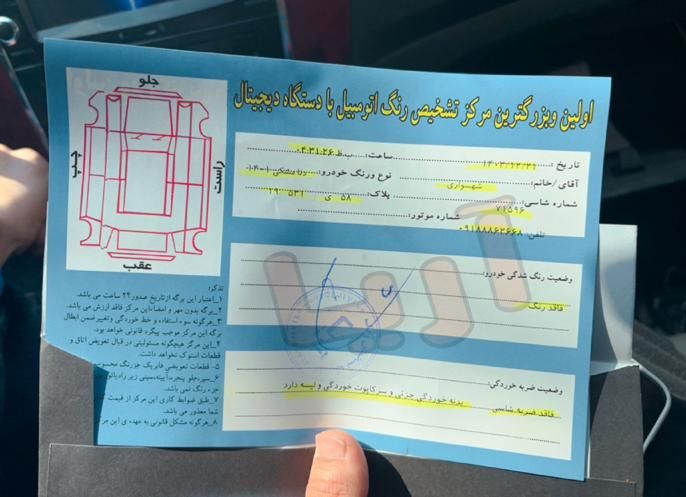 اولین وبزرگترین مرکز تشخیص رنگ اتومبیل با دستگاه دیجیتال
جلو
چپ
راست
عقب
تاریخ : ۱۴۰۳/۱۲/۲۱ ساعت: ۰۴:۳۱:۲۶ ب.ظ
آقای /خانم: شهسواری نوع ورنگ خودرو:
شماره شاسی: ۷۱۵۹۶ پلاک: ۵۸ ی ۵۳۱
تلفن: شماره موتور:
آریا
وضعیت رنگ شدگی خودرو:
فاقد رنگ
وضعیت ضربه خوردگی:
فاقد ضربه شاسی بدنه خوردگی جزئی و سرکاپوت خوردگی و لیسه دارد
تذکر:
۱_اعتبار این برگه ازتاریخ صدور۲۴ ساعت می باشد.
۲_برگه بدون مهر و امضاءاین مرکز فاقد ارزش می باشد.
۳_هرگونه سوء استفاده و خط خوردگی وتغییرضمن ابطال
برگه این مرکز موجب پیگرد قانونی خواهد بود.
۴_این مرکز هیچگونه مسئولیتی در قبال تعویض اتاق و
قطعات استوک نخواهد داشت.
۵- قطعات تعویضی فابریک جزرنگ محسوب
۶_سپر،جلو پنجره،آیینه،سینی زیر
جزء رنگ نمی باشد.
۷_طبق ضوابط کاری این مرکز از قیمت
شما معذور می باشد.
۸_هرگونه مشکل قانونی به عهده ی این